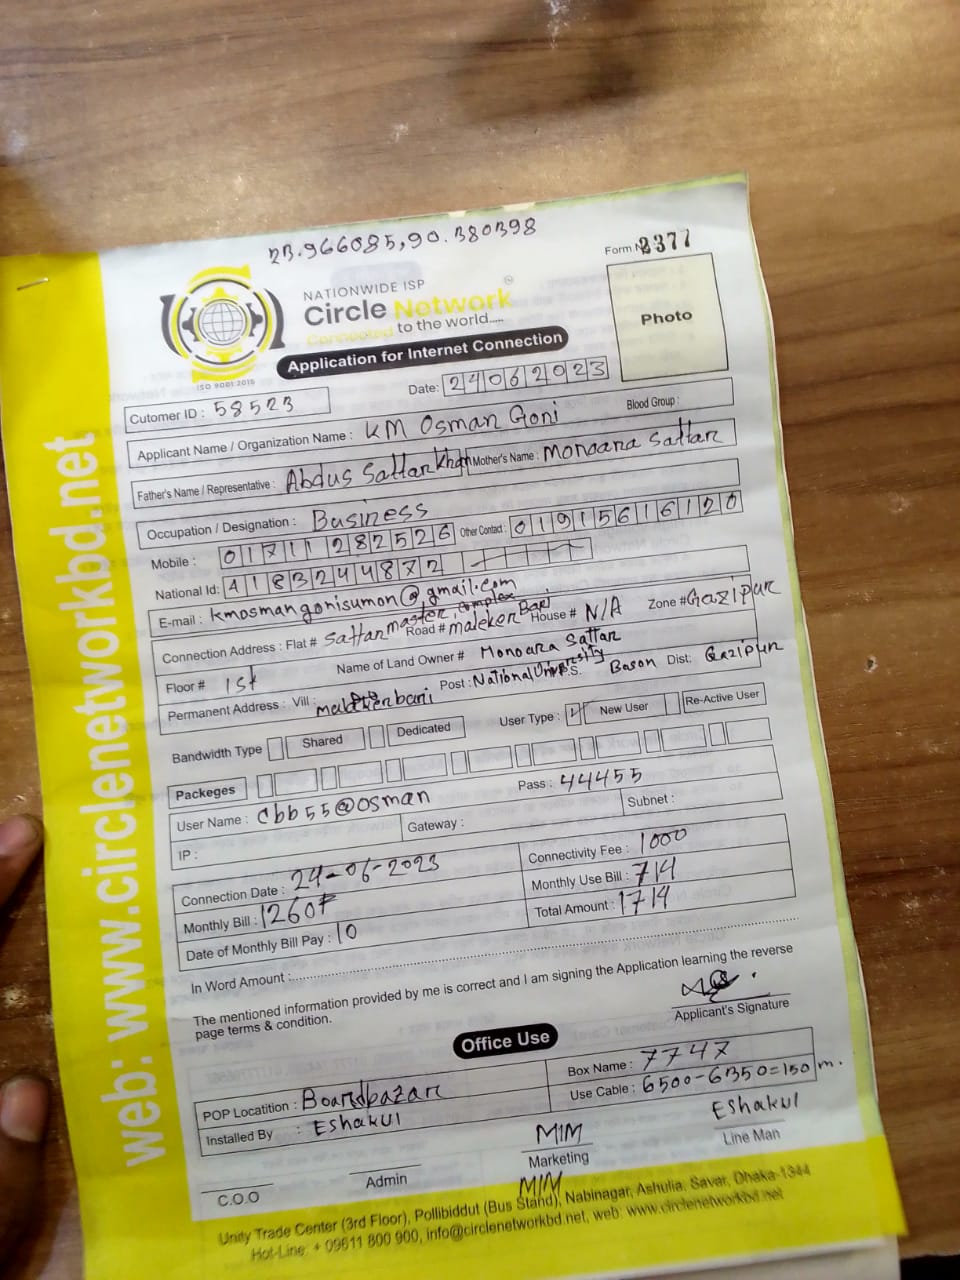 23.966085,90.380398
Form No 2377
NATIONWIDE ISP
Circle Network
Connected to the world.....
ISO 9001:2015
Application for Internet Connection
Photo
Cutomer ID : 58523 Date: 24062023
Applicant Name / Organization Name : KM Osman Goni Blood Group :
Father's Name / Representative : Abdus Sattar Khan Mother's Name : Monoara Sattar
Occupation / Designation : Business
Mobile : 01711282526 Other Contact : 01915616120
National Id: 4183244872
E-mail : kmosmangonisumon@gmail.com
Connection Address : Flat # Sattar master complex Road # maleker Bari House # N/A Zone # Gazipur
Floor # 1st Name of Land Owner # Monoara Sattar
Permanent Address : Vill : Post : National University P.S. Bason Dist: Gazipur
Bandwidth Type Shared Dedicated User Type : New User Re-Active User
Packeges
User Name : cbb55@osman Pass : 44455
IP : Gateway : Subnet :
Connection Date : 24-06-2023 Connectivity Fee : 1000
Monthly Bill : 1260 Monthly Use Bill : 714
Date of Monthly Bill Pay : 10 Total Amount : 1714
In Word Amount :
The mentioned information provided by me is correct and I am signing the Application learning the reverse
page terms & condition.
Applicant's Signature
Office Use
POP Locatition : Boardbazar Box Name : 7747
Installed By : Eshakul Use Cable : 6500-6350=150 m.
MIM Eshakul
C.O.O Admin Marketing Line Man
MIM
Unity Trade Center (3rd Floor), Pollibiddut (Bus Stand), Nabinagar, Ashulia, Savar, Dhaka-1344
Hot-Line: + 09611 800 900, info@circlenetworkbd.net, web: www.circlenetworkbd.net
web: www.circlenetworkbd.net